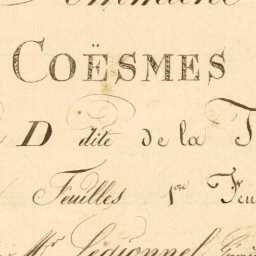 COËSMES
D dite de la
Feuilles 1re Feu
Mr Légionnel